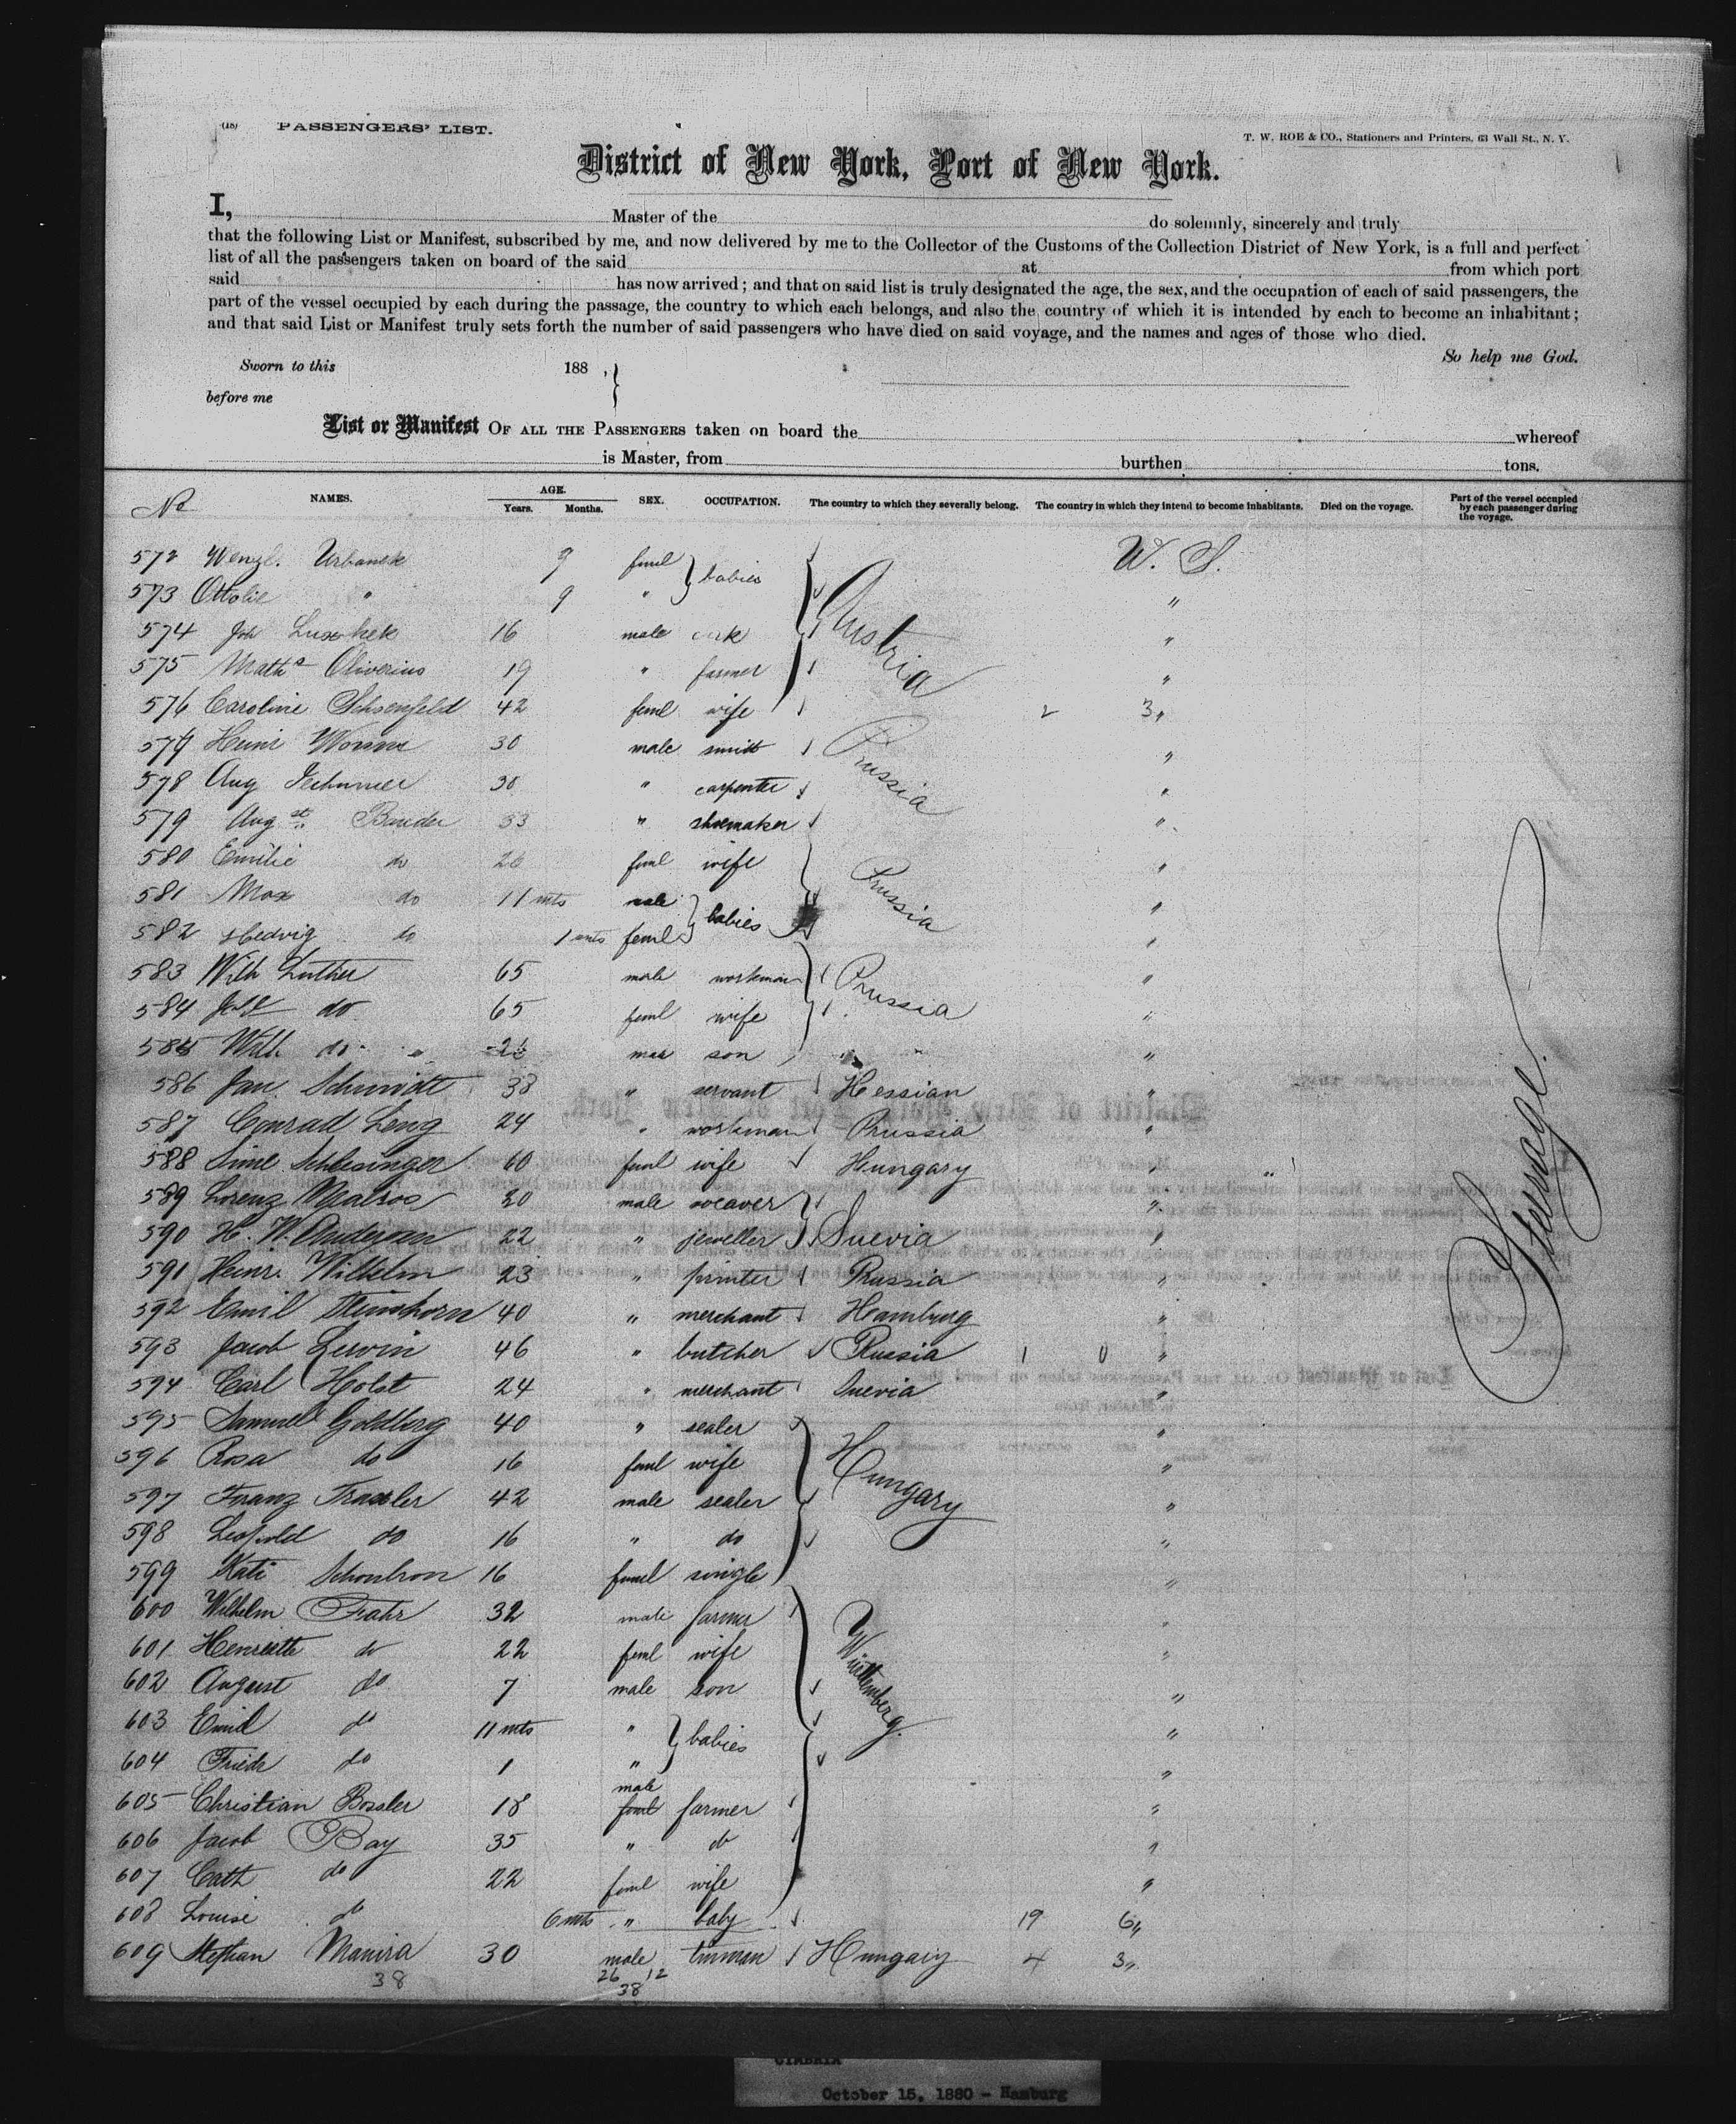 (18) PASSENGERS' LIST.
T. W. ROE & CO., Stationers and Printers, 63 Wall St., N. Y.
District of New York, Port of New York.
I, Master of the do solemnly, sincerely and truly
that the following List or Manifest, subscribed by me, and now delivered by me to the Collector of the Customs of the Collection District of New York, is a full and perfect
list of all the passengers taken on board of the said at from which port
said has now arrived; and that on said list is truly designated the age, the sex, and the occupation of each of said passengers, the
part of the vessel occupied by each during the passage, the country to which each belongs, and also the country of which it is intended by each to become an inhabitant;
and that said List or Manifest truly sets forth the number of said passengers who have died on said voyage, and the names and ages of those who died.
So help me God.
Sworn to this 188 ,
before me
List or Manifest OF ALL THE PASSENGERS taken on board the whereof
is Master, from burthen tons.
No NAMES. AGE. Years. Months. SEX. OCCUPATION. The country to which they severally belong. The country in which they intend to become inhabitants. Died on the voyage. Part of the vessel occupied by each passenger during the voyage.
572 Wenzl. Urbanek 9 feml babies Austria U. S.
573 Ottolie " 9 " "
574 Joh 16 male "
575 Math Oliverius 19 " farmer "
576 Caroline Schoenfeld 42 feml wife 2 3 "
577 Heinr 30 male smith Prussia "
578 Aug 30 " carpenter "
579 Aug st. Bauder 33 " shoemaker "
580 Emilie do 26 feml wife Prussia "
581 Max do 11 mts male babies "
582 Hedvig do 1 mts feml "
583 Wilh Luther 65 male workman Prussia "
584 do 65 feml wife "
585 Wilh do " son " "
586 Jan Schmidt 38 " servant Hessian "
587 Conrad Leng 24 " workman Prussia "
588 Schlesinger 60 feml wife Hungary "
589 Lorenz 20 male weaver Suevia "
590 H. W. Anderson 22 " jeweller "
591 Heinr. Wilhelm 23 " printer Prussia "
592 Emil Steinhorn 40 " merchant Hamburg "
593 Jacob Lewin 46 " butcher Russia 1 0 "
594 Carl Holst 24 " merchant Suevia "
595 Samuel Goldberg 40 " sealer Hungary "
596 Rosa do 16 feml wife "
597 Franz Traxler 42 male sealer "
598 Leopold do 16 " do "
599 Kati Schonbron 16 feml single "
600 Wilhelm Frahr 32 male farmer Würtemberg. "
601 Henriette do 22 feml wife "
602 August do 7 male son "
603 Emil do 11 mts " babies "
604 Friedr do 1 " "
605 Christian Bossler 18 male feml farmer "
606 Jacob Bay 35 " do "
607 Cath do 22 feml wife "
608 Louise do 6 mts " baby 19 6 "
609 Stephan Manira 30 male tinman Hungary 4 3 "
38 26 12
38
Steerage.
CIMBRIA
October 15, 1880 - Hamburg